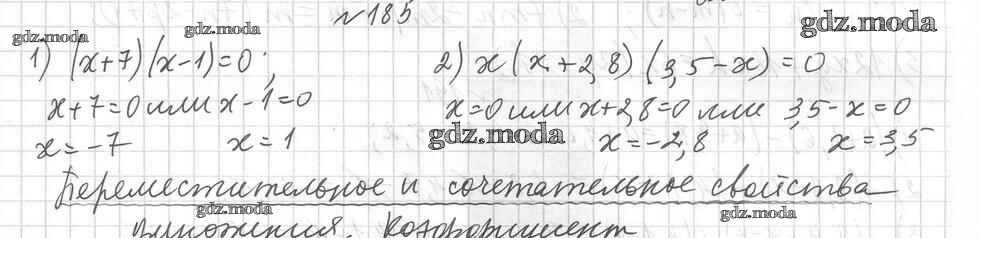 №185
gdz.moda
gdz.moda
gdz.moda
1) (x+7)(x-1)=0; 2) x(x+2,8)(3,5-x)=0
x+7=0 или x-1=0 x=0 или x+2,8=0 или 3,5-x=0
x=-7 x=1 gdz.moda x=-2,8 x=3,5
Переместительное и сочетательное свойства
gdz.moda gdz.moda
умножения. Коэффициент